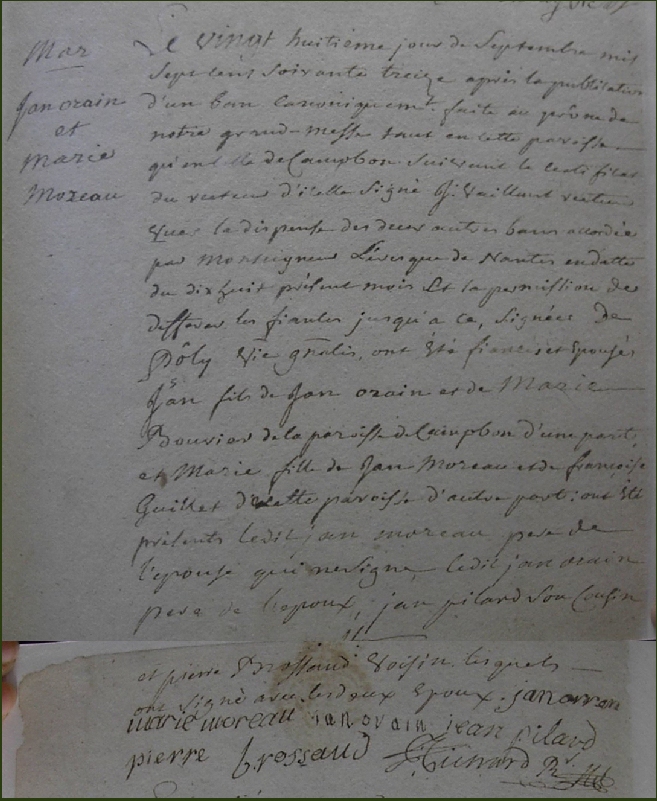 Mar
Jan orain
et
Marie
Moreau
Le vingt huitième jour de Septembre mil
Sept cens soixante treize après la publication
d'un ban canoniquemt. faite au prône de
notre grand-messe tant en cette paroisse
qu'en celle de Campbon Suivant le certificat
du recteur d'icelle Signé J. Vaillant recteur
Vue la dispense des deux autres bans accordée
par Monseigneur L'évesque de Nantes en datte
du dix huit présent mois Et la permission de
differer les fiantes jusqu'a ce, Signées De
Pôly Vic gnalis, ont été fiancés et Epousés
Jan fils de Jan orain et de Marie
Bouvier de la paroisse de Campbon d'une part,
et Marie fille de Jan Moreau et de françoise
Guillet de cette paroisse d'autre part: ont Eté
présents ledit jan moreau pere de
l'epouse qui ne Signe, ledit jan orain
pere de l'epoux, jan pilard Son Cousin
et pierre Brossaud Voisin lesquels
ont Signé avec les deux Epoux. jan orain
marie moreau jan orain jean pilard
pierre brossaud